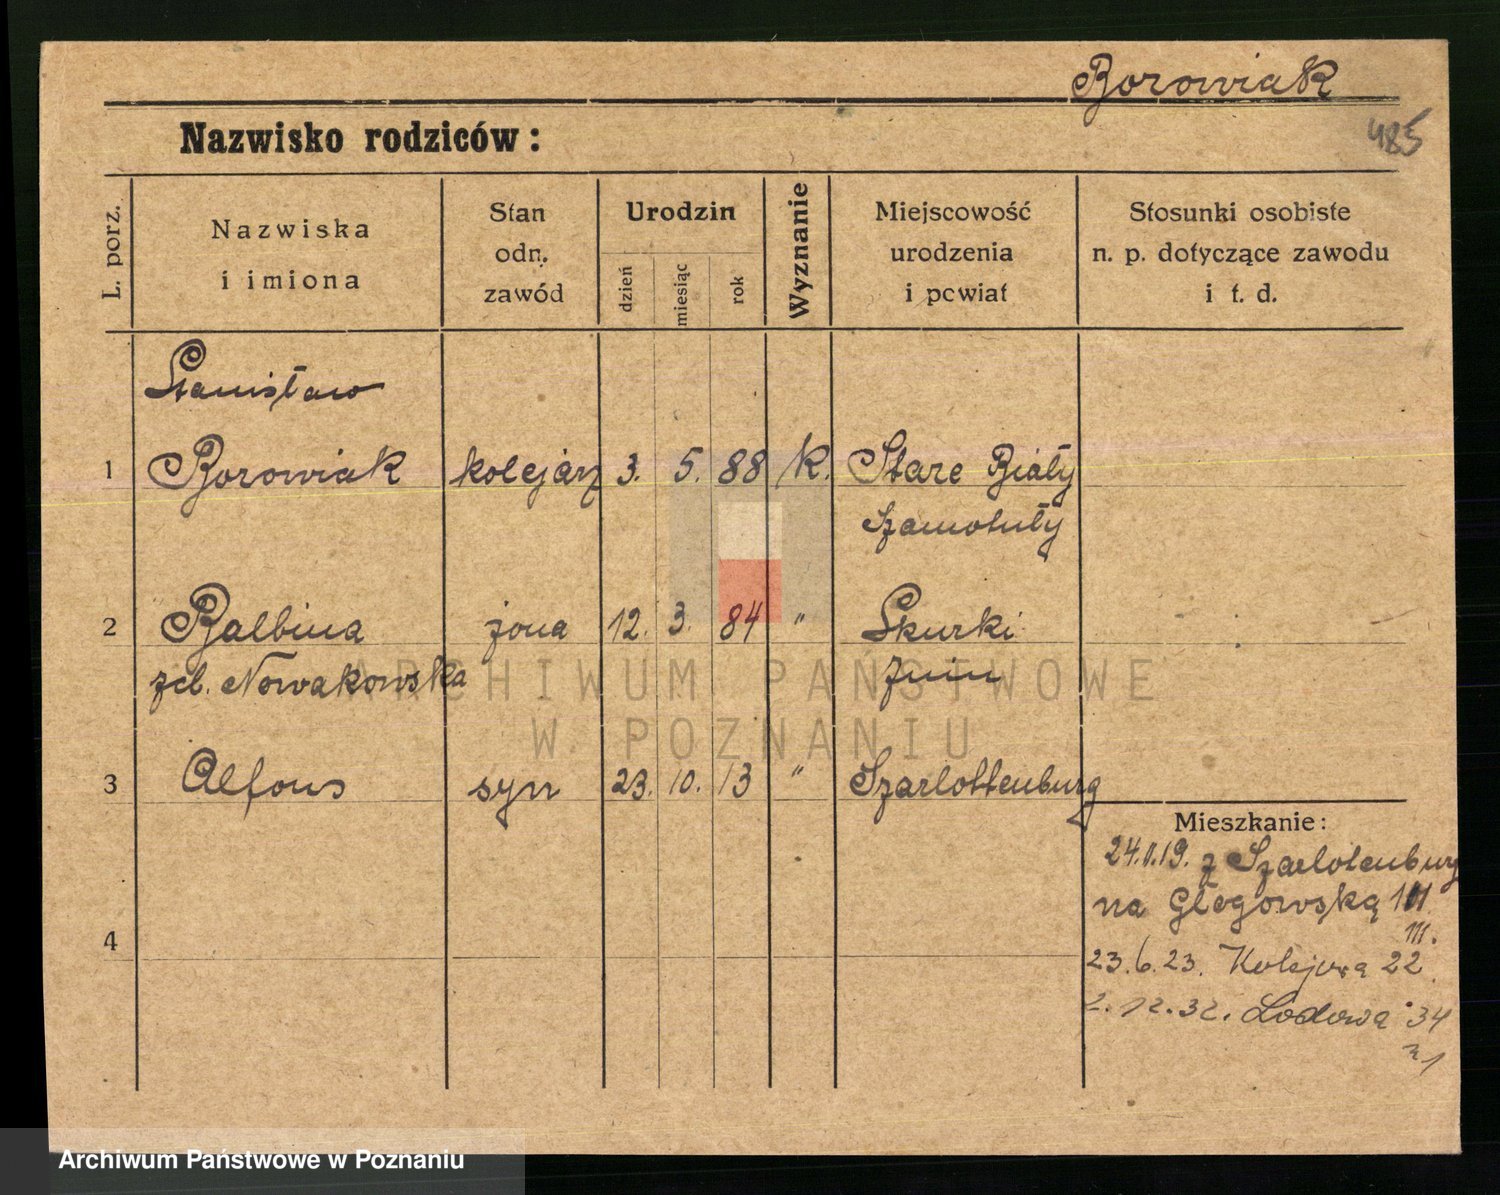 Borowiak
485
Nazwisko rodziców:
L. porz.
Nazwiska
i imiona
Stan
odn.
zawód
Urodzin
dzień
miesiąc
rok
Wyznanie
Miejscowość
urodzenia
i powiat
Stosunki osobiste
n. p. dotyczące zawodu
i t. d.
Stanisław
1 Borowiak kolejarz 3. 5. 88 k. Stare Biały
Szamotuły
2 Balbina żona 12. 3. 84 " Skurki
zd. Nowakowska Żnin
3 Alfons syn 23. 10. 13 " Szarlottenburg
Mieszkanie:
z Szarlotenburg
na Głogowską
4
23.6.23. Kolejowa 22
2.12.32. Lodowa 34
ARCHIWUM PAŃSTWOWE
W POZNANIU
Archiwum Państwowe w Poznaniu